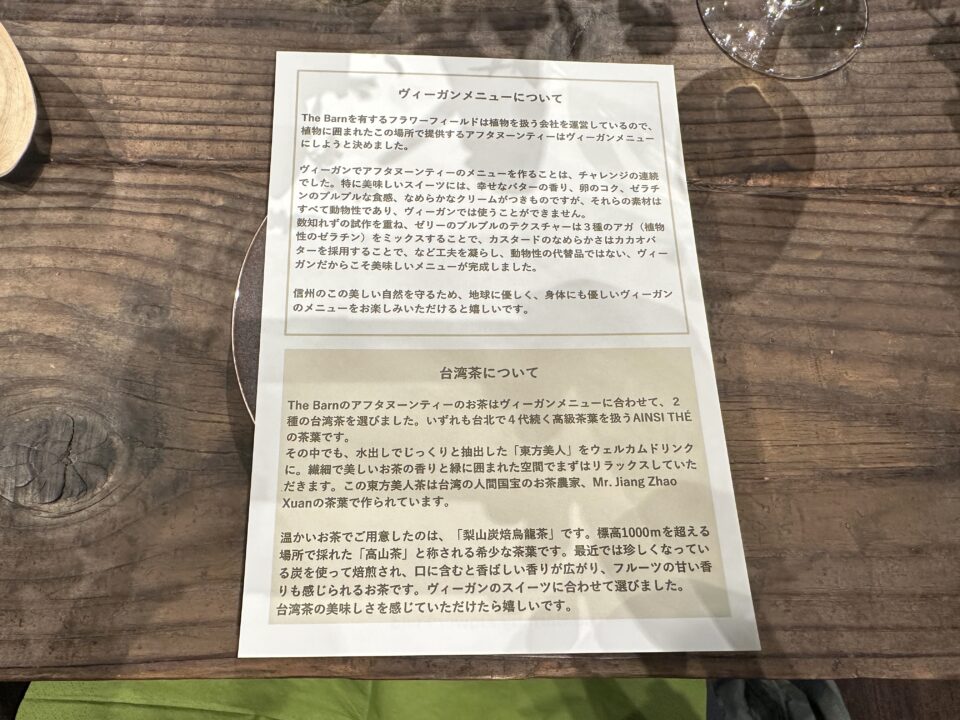 ヴィーガンメニューについて
The Barnを有するフラワーフィールドは植物を扱う会社を運営しているので、
植物に囲まれたこの場所で提供するアフタヌーンティーはヴィーガンメニュー
にしようと決めました。
ヴィーガンでアフタヌーンティーのメニューを作ることは、チャレンジの連続
でした。特に美味しいスイーツには、幸せなバターの香り、卵のコク、ゼラチ
ンのプルプルな食感、なめらかなクリームがつきものですが、それらの素材は
すべて動物性であり、ヴィーガンでは使うことができません。
数知れずの試作を重ね、ゼリーのプルプルのテクスチャーは３種のアガ（植物
性のゼラチン）をミックスすることで、カスタードのなめらかさはカカオバ
ターを採用することで、など工夫を凝らし、動物性の代替品ではない、ヴィー
ガンだからこそ美味しいメニューが完成しました。
信州のこの美しい自然を守るため、地球に優しく、身体にも優しいヴィーガン
のメニューをお楽しみいただけると嬉しいです。
台湾茶について
The Barnのアフタヌーンティーのお茶はヴィーガンメニューに合わせて、２
種の台湾茶を選びました。いずれも台北で４代続く高級茶葉を扱うAINSI THÉ
の茶葉です。
その中でも、水出しでじっくりと抽出した「東方美人」をウェルカムドリンク
に。繊細で美しいお茶の香りと緑に囲まれた空間でまずはリラックスしていた
だきます。この東方美人茶は台湾の人間国宝のお茶農家、Mr. Jiang Zhao
Xuanの茶葉で作られています。
温かいお茶でご用意したのは、「梨山炭焙烏龍茶」です。標高1000mを超える
場所で採れた「高山茶」と称される希少な茶葉です。最近では珍しくなってい
る炭を使って焙煎され、口に含むと香ばしい香りが広がり、フルーツの甘い香
りも感じられるお茶です。ヴィーガンのスイーツに合わせて選びました。
台湾茶の美味しさを感じていただけたら嬉しいです。